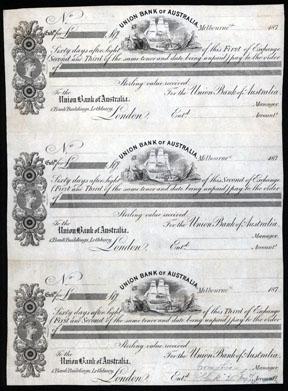 No
UNION BANK OF AUSTRALIA
Exch. for £ Melbourne 187
Sixty days after sight of this First of Exchange
(Second and Third of the same tenor and date being unpaid) pay to the order
of
Sterling value received.
To the For the Union Bank of Australia,
Union Bank of Australia, Manager
1, Bank Buildings, Lothbury, Accountt
London Entd.
No
UNION BANK OF AUSTRALIA
Exch. for £ Melbourne 187
Sixty days after sight of this Second of Exchange
(First and Third of the same tenor and date being unpaid) pay to the order
of
Sterling value received
To the For the Union Bank of Australia,
Union Bank of Australia, Manager.
1, Bank Buildings, Lothbury, Accountt
London Entd.
No
UNION BANK OF AUSTRALIA
Exch. for £ Melbourne 187
Sixty days after sight of this Third of Exchange
(First and Second of the same tenor and date being unpaid) pay to the order
of
Sterling value received
To the For the Union Bank of Australia,
Union Bank of Australia, Manager
1, Bank Buildings, Lothbury,
London Entd.